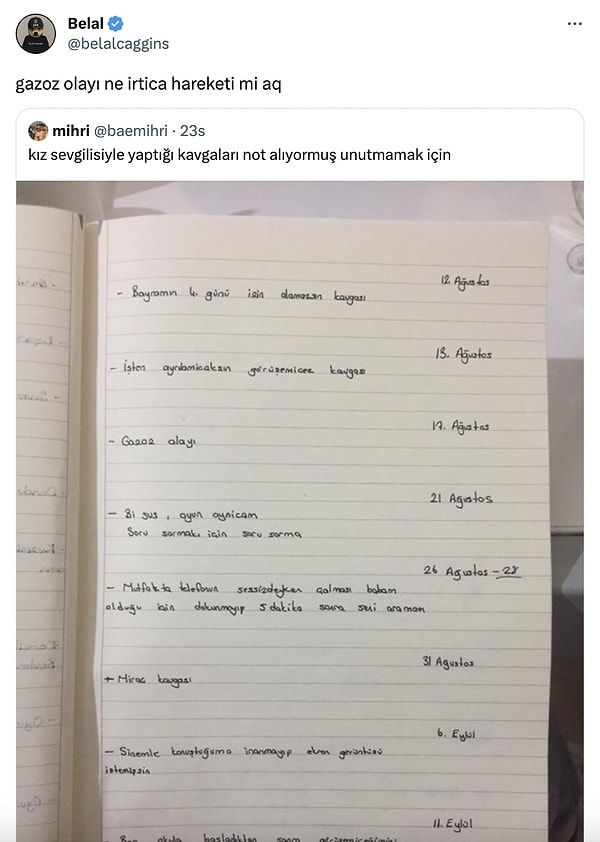 Belal
@belalcaggins
gazoz olayı ne irtica hareketi mi aq
mihri @baemihri · 23s
kız sevgilisiyle yaptığı kavgaları not alıyormuş unutmamak için
12. Ağustos
- Bayramın 4. günü için olamazsın kavgası
13. Ağustos
- İşten ayrılmicaksın görüşemicez kavgası
17. Ağustos
- Gazoz olayı
21 Ağustos
- Bi sus, oyun oynicam
Soru sormak için soru sorma
26 Ağustos - 28
- Mutfakta telefonun sessizdeyken çalması babam
olduğu için dokunmayıp 5 dakika sonra seni aramam
31 Ağustos
+ Miraç kavgası
6. Eylül
- Sinemle konuştuğuma inanmayıp ekran görüntüsü
istemişsin
11. Eylül
okula başladıktan sonra